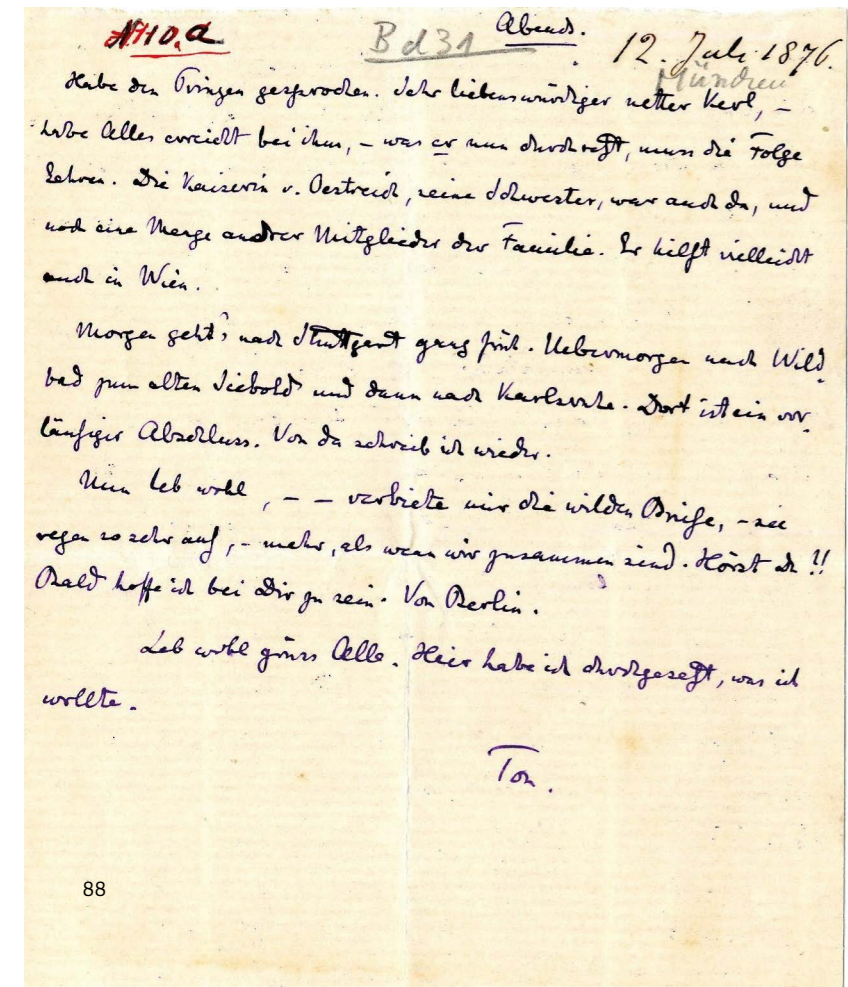 N10.a Bd31 Abends. 12. Juli 1876.
München
Habe den Prinzen gesprochen. Sehr liebenswürdiger netter Kerl, –
habe Alles erreicht bei ihm, – was er nun durchsetzt, muss die Folge
lehren. Die Kaiserin v. Oestreich, seine Schwester, war auch da, und
noch eine Menge andrer Mitglieder der Familie. Er hilft vielleicht
auch in Wien.
Morgen geht's nach Stuttgart ganz früh. Uebermorgen nach Wild-
bad zum alten Siebold und dann nach Karlsruhe. Dort ist ein vor-
läufiger Abschluss. Von da schreib ich wieder.
Nun leb wohl, – – verbiete mir die wilden Briefe, – sie
regen so sehr auf, – mehr, als wenn wir zusammen sind. Hörst du!!
Bald hoffe ich bei Dir zu sein. Von Berlin.
Leb wohl grüss Alle. Hier habe ich durchgesetzt, was ich
wollte.
Ton.
88